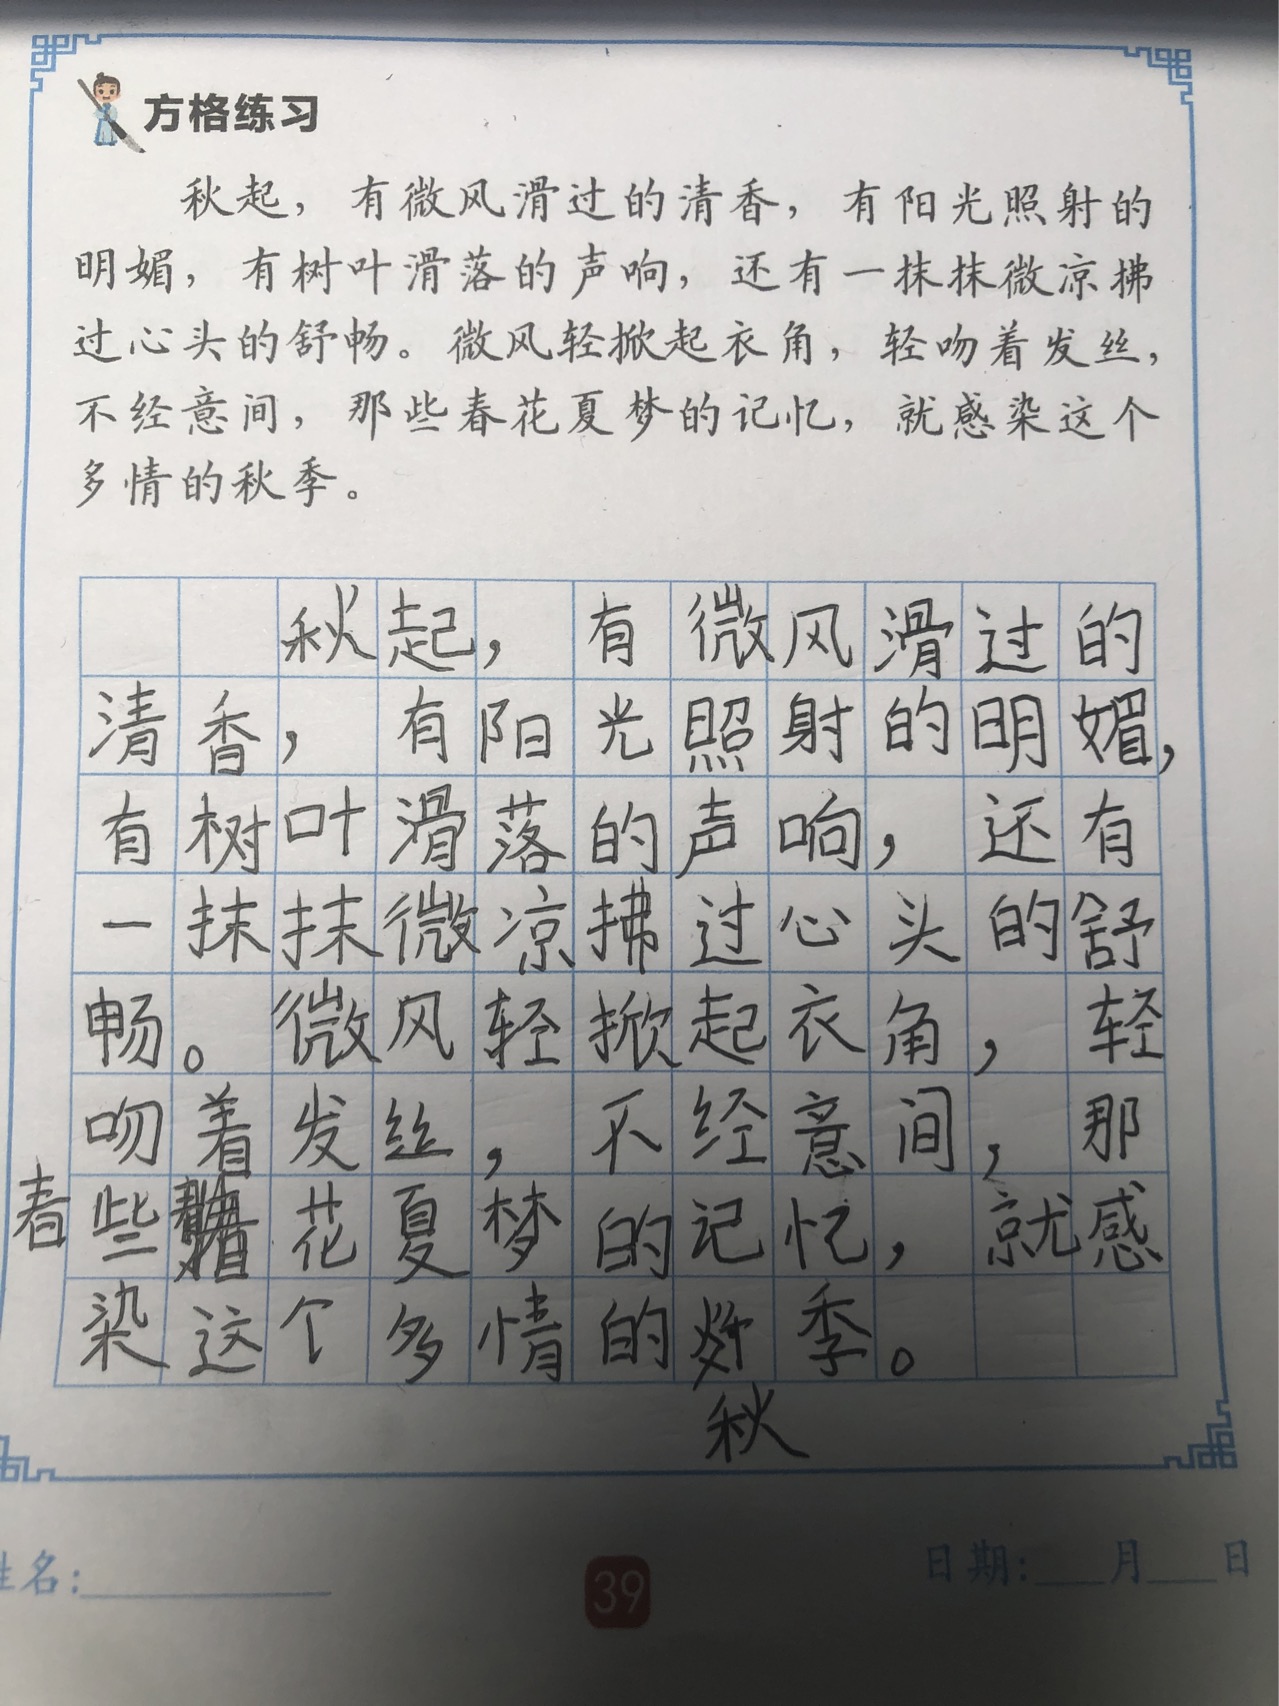 方格练习
秋起，有微风滑过的清香，有阳光照射的
明媚，有树叶滑落的声响，还有一抹抹微凉拂
过心头的舒畅。微风轻掀起衣角，轻吻着发丝，
不经意间，那些春花夏梦的记忆，就感染这个
多情的秋季。
秋起，有微风滑过的
清香，有阳光照射的明媚，
有树叶滑落的声响，还有
一抹抹微凉拂过心头的舒
畅。微风轻掀起衣角，轻
吻着发丝，不经意间，那
春
些花夏梦的记忆，就感
染这个多情的季。
秋
姓名：
39
日期：月日